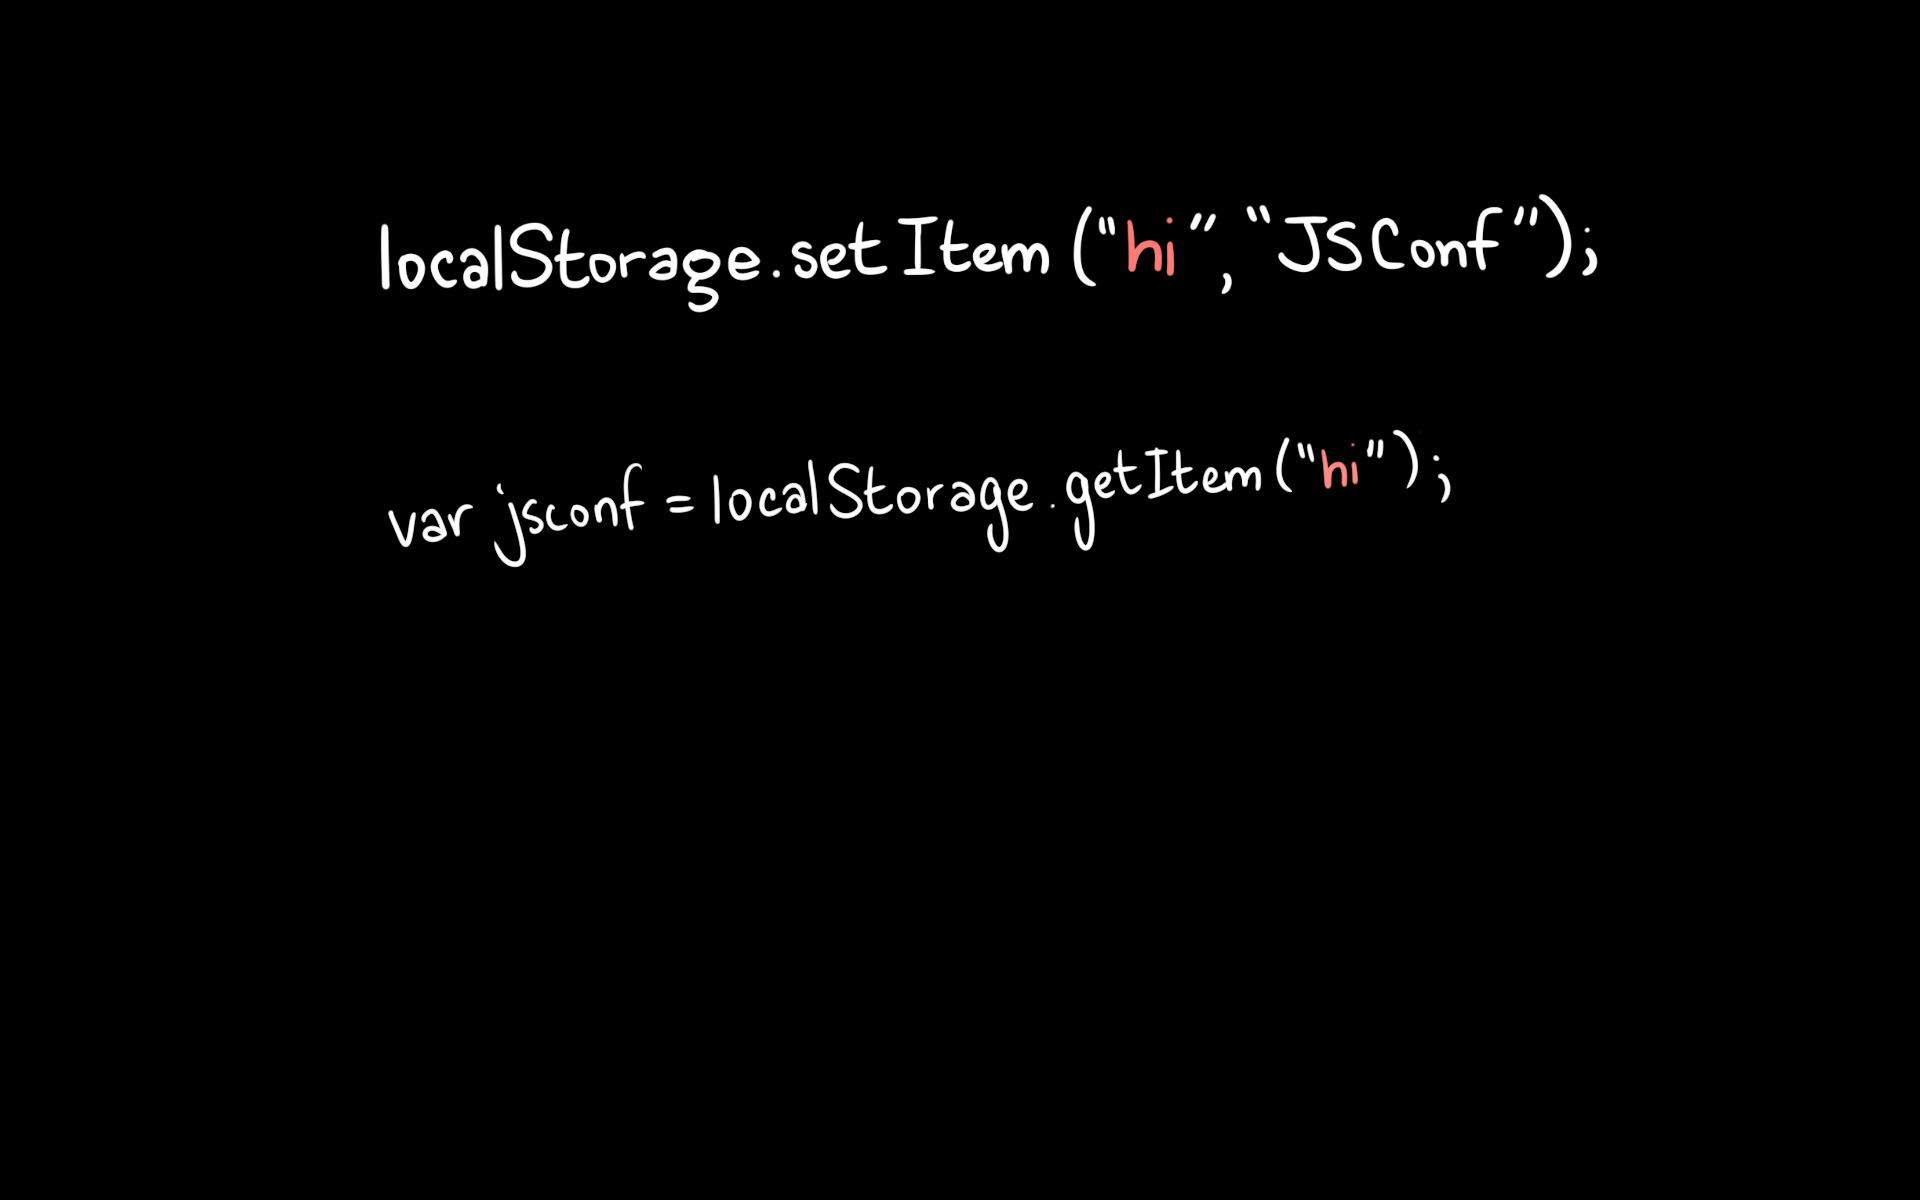 localStorage.setItem("hi", "JSConf");
var jsconf = localStorage.getItem("hi");